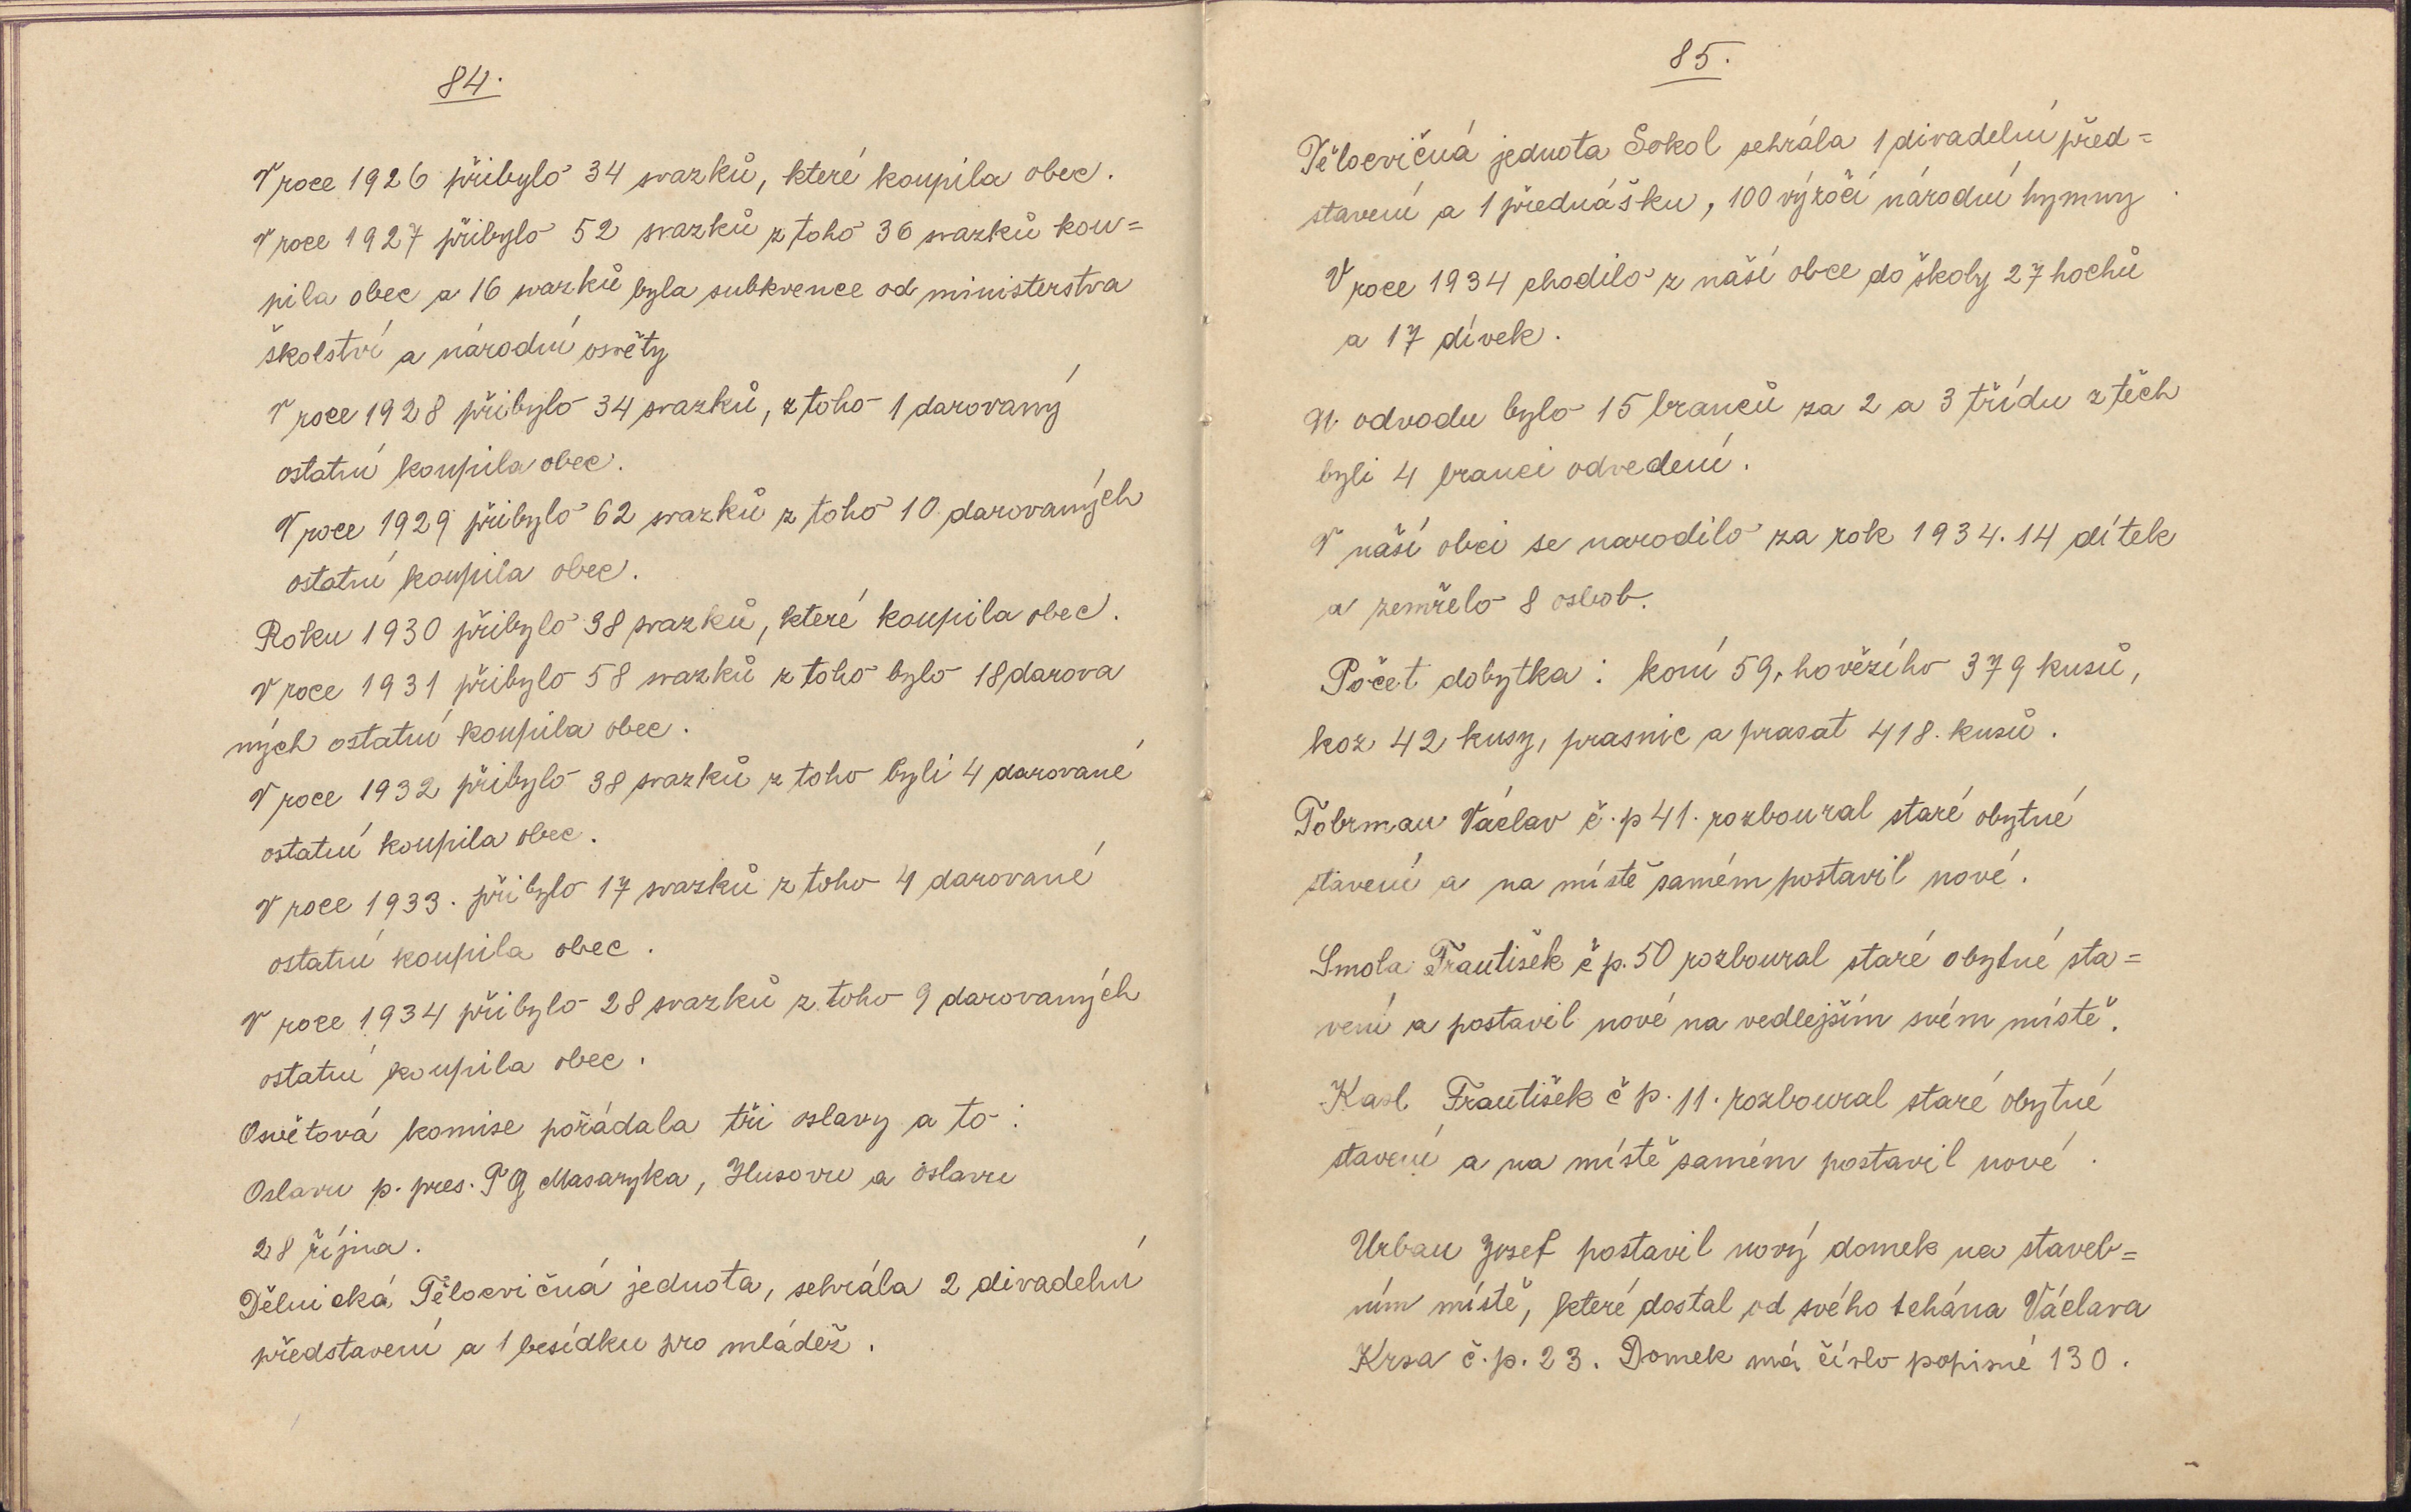 84.
V roce 1926 přibylo 34 svazků, které koupila obec.
V roce 1927 přibylo 52 svazků z toho 36 svazků kou=
pila obec a 16 svazků byla subkvence od ministerstva
školství a národní osvěty
V roce 1928 přibylo 34 svazků, z toho 1 darovaný
ostatní koupila obec.
V roce 1929 přibylo 62 svazků z toho 10 darovaných
ostatní koupila obec.
Roku 1930 přibylo 38 svazků, které koupila obec.
V roce 1931 přibylo 58 svazků z toho bylo 18 darova
ných ostatní koupila obec.
V roce 1932 přibylo 38 svazků z toho byli 4 darované
ostatní koupila obec.
V roce 1933. přibylo 17 svazků z toho 4 darované
ostatní koupila obec.
V roce 1934 přibylo 28 svazků z toho 9 darovaných
ostatní koupila obec.
Osvětová komise pořádala tři oslavy a to:
Oslavu p. pres. TG Masaryka, Husovu a oslavu
28 října.
Dělnická Tělocvičná jednota, sehrála 2 divadelní
představení a 1 besídku pro mládež.
85.
Tělocvičná jednota Sokol sehrála 1 divadelní před=
stavení a 1 přednášku, 100 výročí národní hymny
V roce 1934 chodilo z naší obce do školy 27 hochů
a 17 dívek.
U odvodu bylo 15 branců za 2 a 3 třídu z těch
byli 4 branci odvedení.
V naší obci se narodilo za rok 1934. 14 dítek
a zemřelo 8 osbob.
Počet dobytka: koní 59, hovězího 379 kusů,
koz 42 kusy, prasnic a prasat 418. kusů.
Tobrman Václav č. p 41. rozboural staré obytné
stavení a na místě samém postavil nové.
Smola František č p. 50 rozboural staré obytné sta=
vení a postavil nové na vedlejším svém místě.
Kasl František č p. 11. rozboural staré obytné
stavení a na místě samém postavil nové.
Urban Josef postavil nový domek na staveb=
ním místě, které dostal od svého tchána Václava
Krsa č. p. 23. Domek má číslo popisné 130.